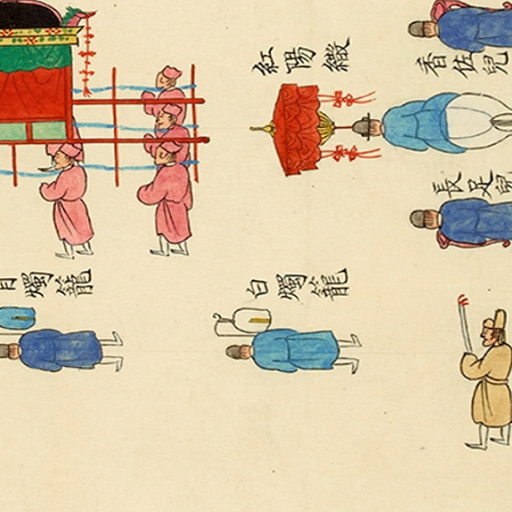 紅陽繖
香佐兒
長足兒
白燭籠
燭籠